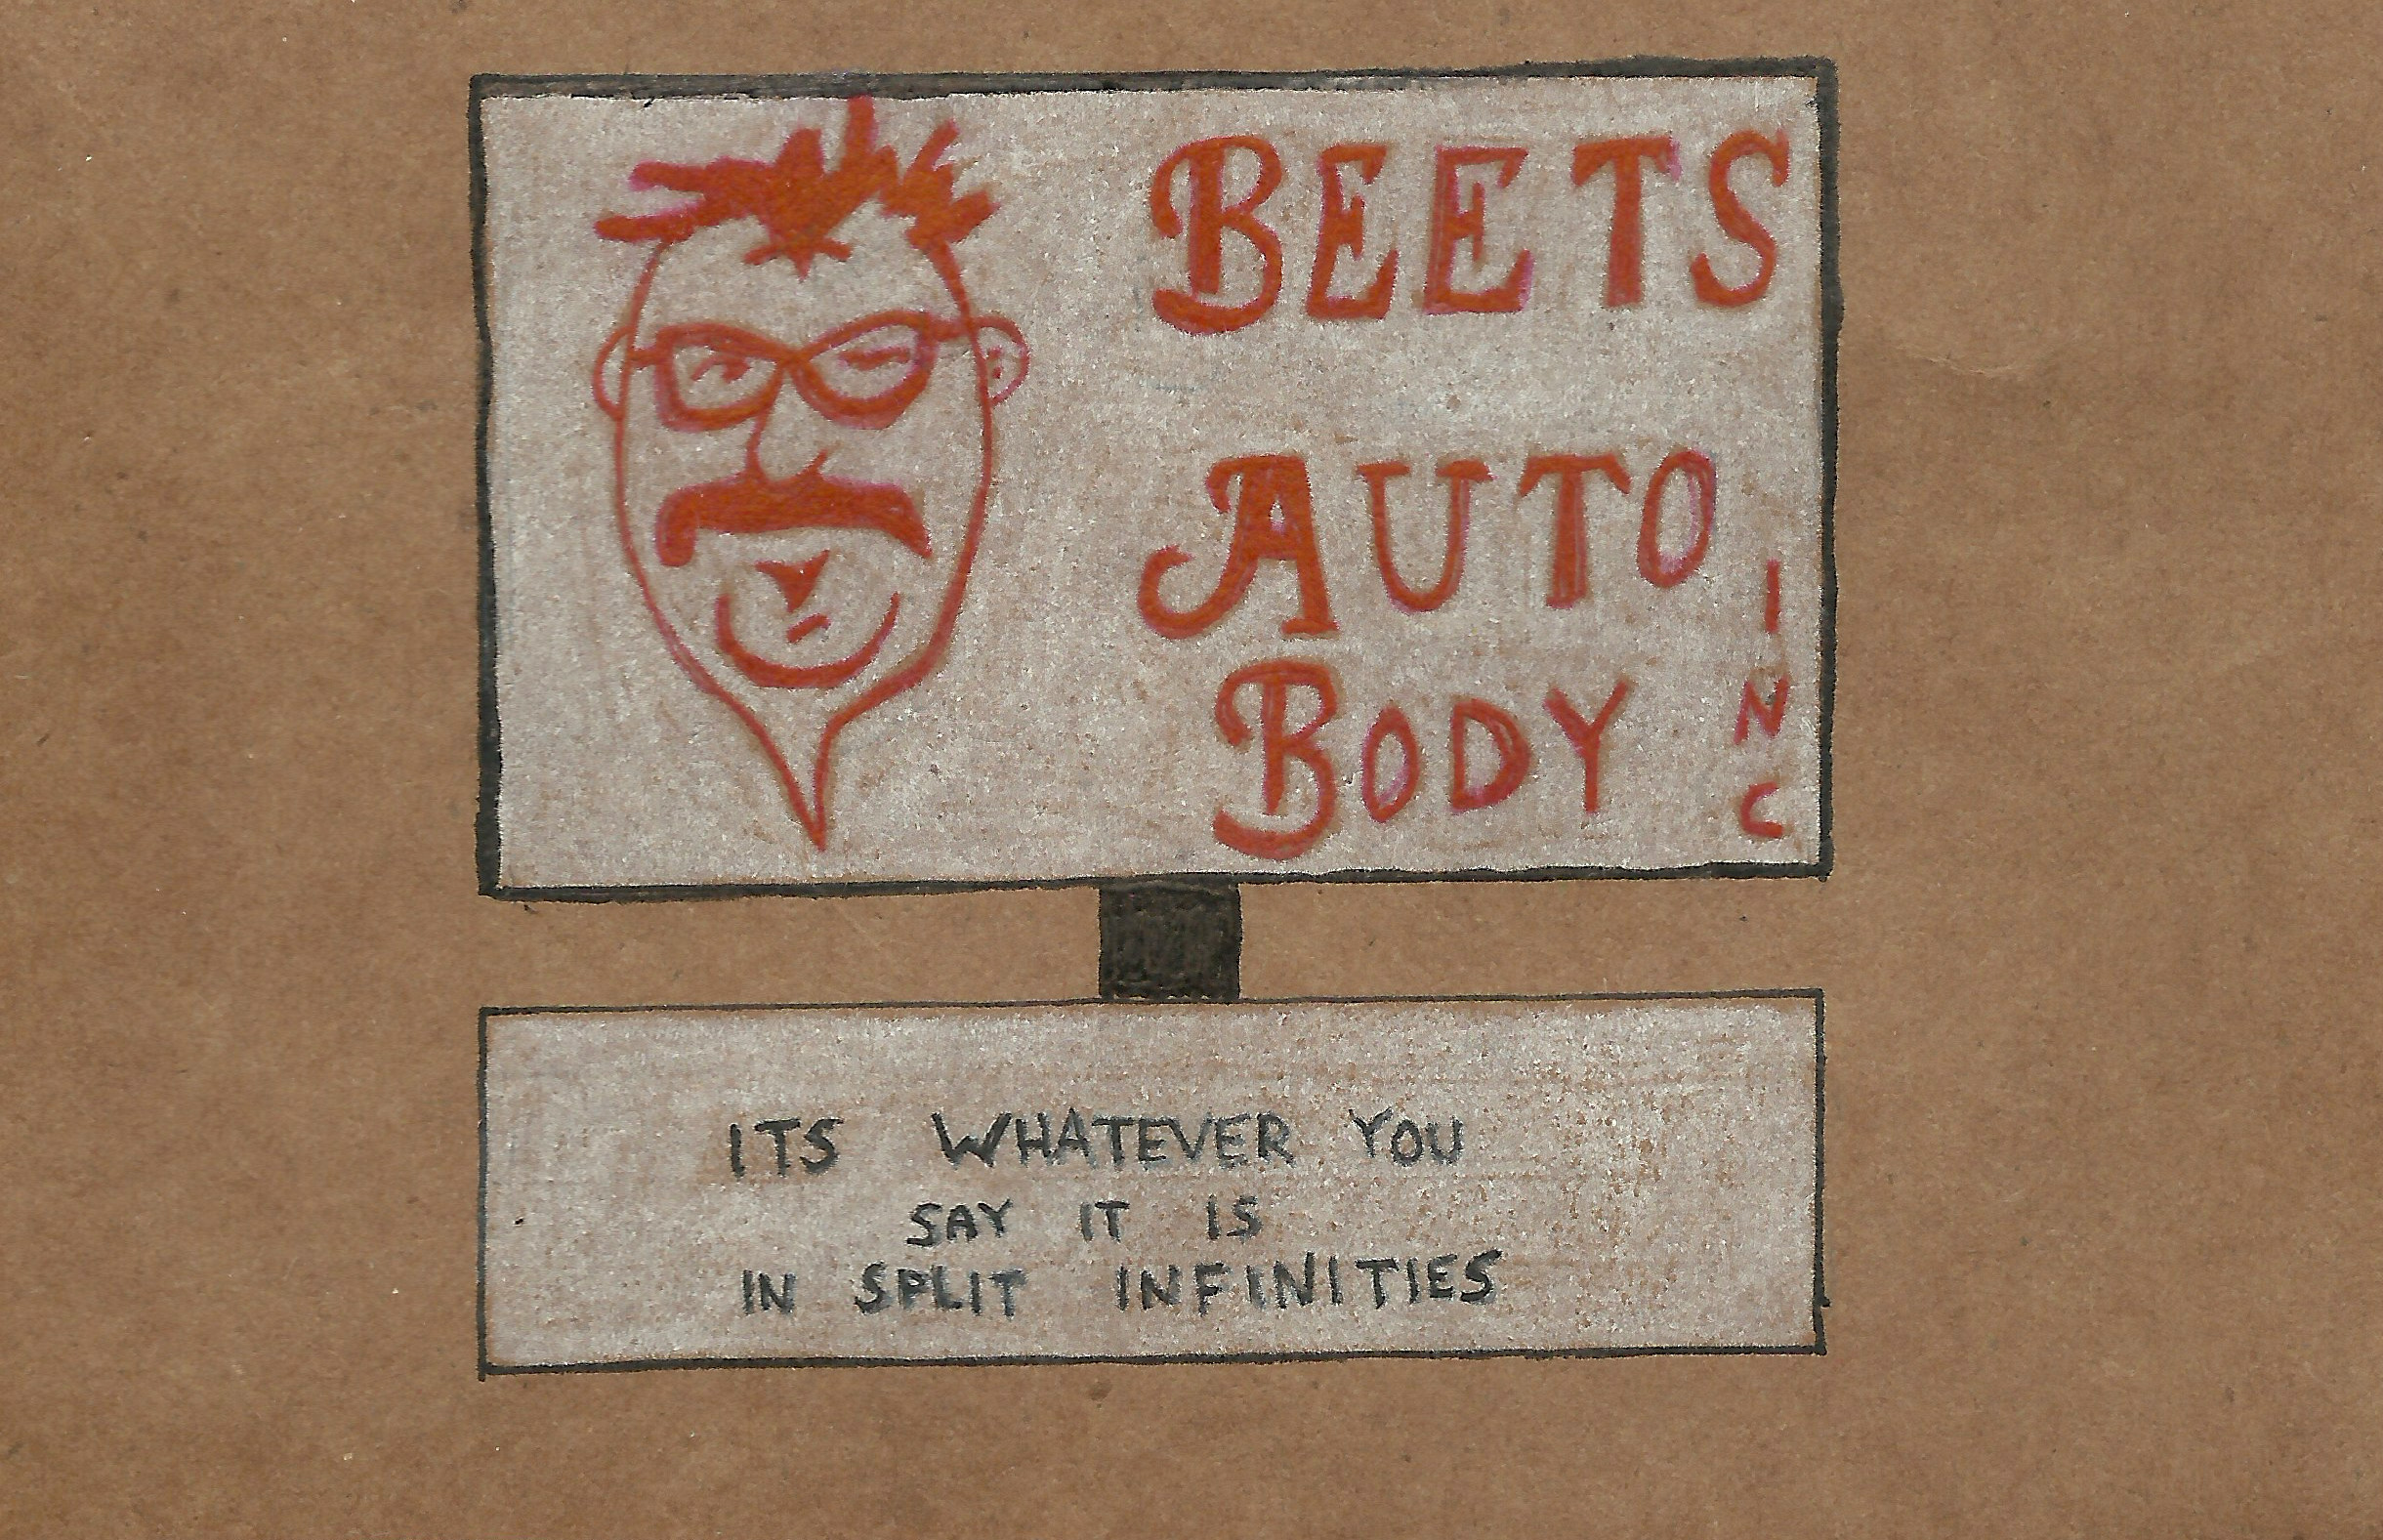 BEETS
AUTO
BODY
INC
ITS WHATEVER YOU
SAY IT IS
IN SPLIT INFINITIES